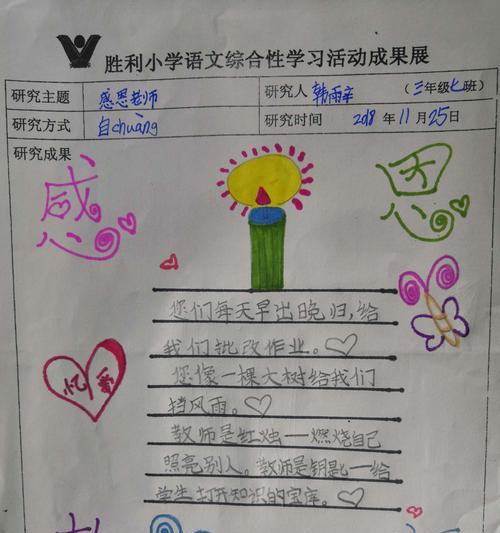 胜利小学语文综合性学习活动成果展
研究主题 感恩老师 研究人 韩雨辛 (三年级七班)
研究方式 自chuàng 研究时间 2018年11月25日
研究成果
感 恩
您们每天早出晚归,给
我们批改作业。
您像一棵大树给我们
挡风雨。
教师是红烛——燃烧自己
照亮别人。教师是钥匙—给
学生打开知识的宝库。
爱